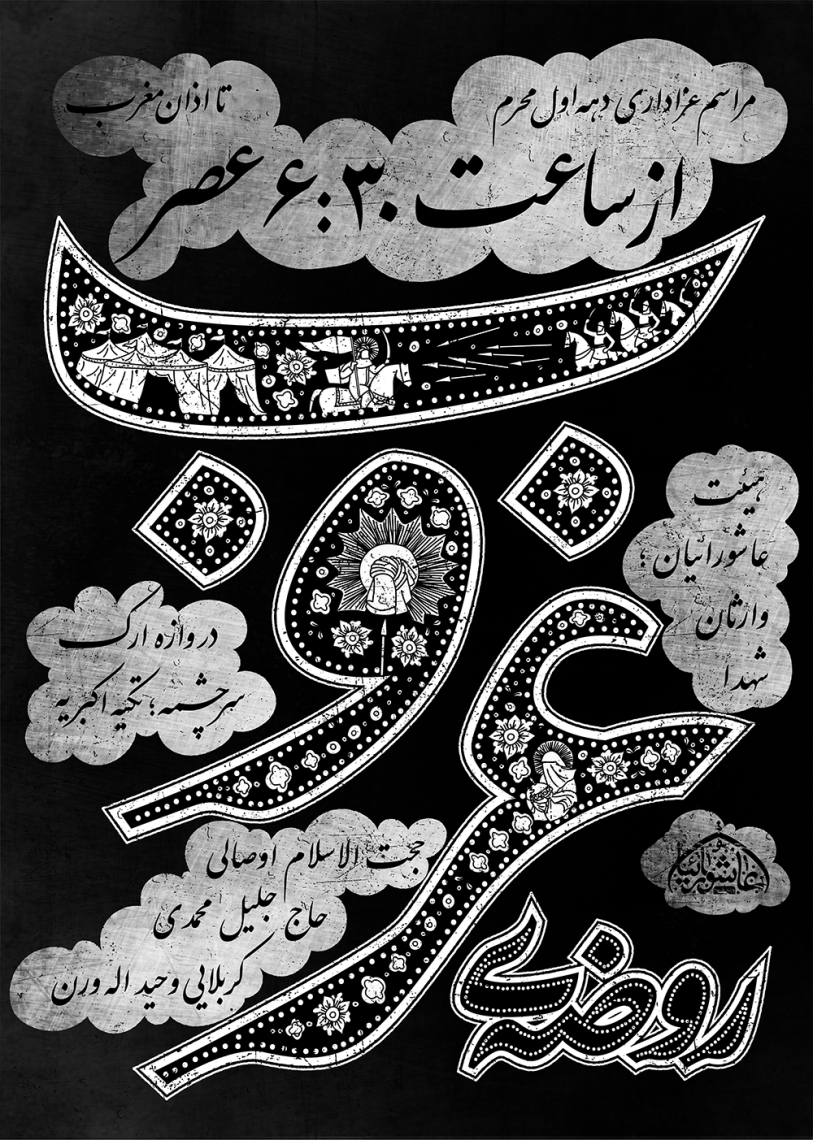 مراسم عزاداری دهه اول محرم
از ساعت ۶:۳۰ عصر
تا اذان مغرب
غروب
هیئت
عاشورائیان ؛
وارثان
شهدا
دروازه ارک
سرچشمه ؛ تکیه اکبریه
حجت الاسلام اوصالی
حاج جلیل محمدی
کربلایی وحید اله ورن
عاشورائیان
روضه‌ی